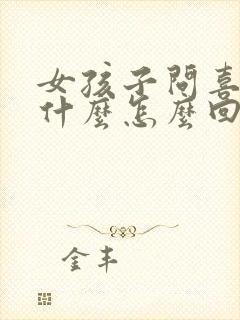 女孩子問喜
什麼怎麼回
金丰